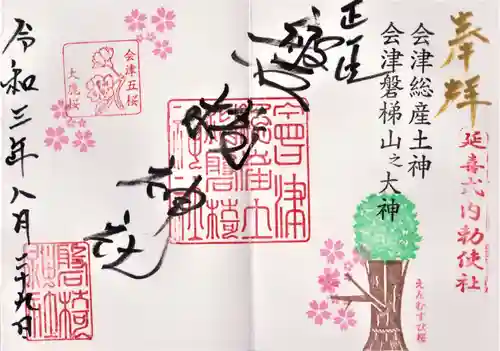 奉拝
延喜式内勅使社
会津総産土神
会津磐梯山之大神
えんむすび桜
正一位
磐椅神社
會津
総産土
神磐椅
神社
会津五桜
大鹿桜
磐椅
神社
令和三年八月二十九日